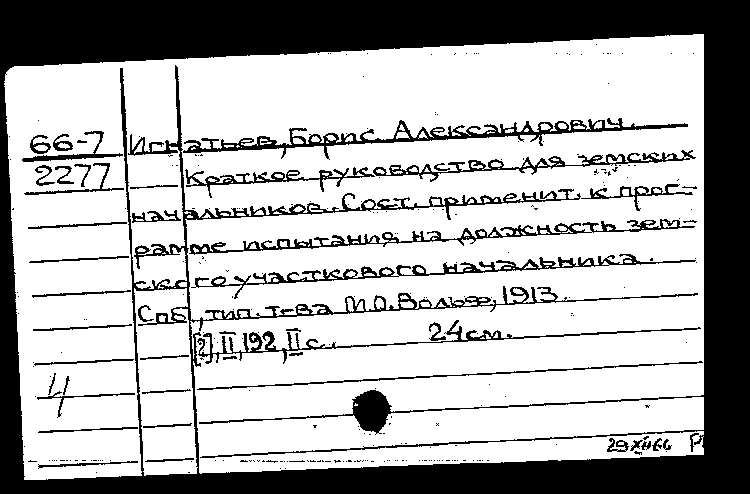 66-7 Игнатьев, Борис Александрович.
2277 Краткое руководство для земских
начальников. Сост. применит. к прог-
рамме испытания на должность зем-
ского участкового начальника.
СПб., тип. т-ва М.О.Вольф, 1913.
[2], II, 192, II с. 24см.
4
29 XII 66